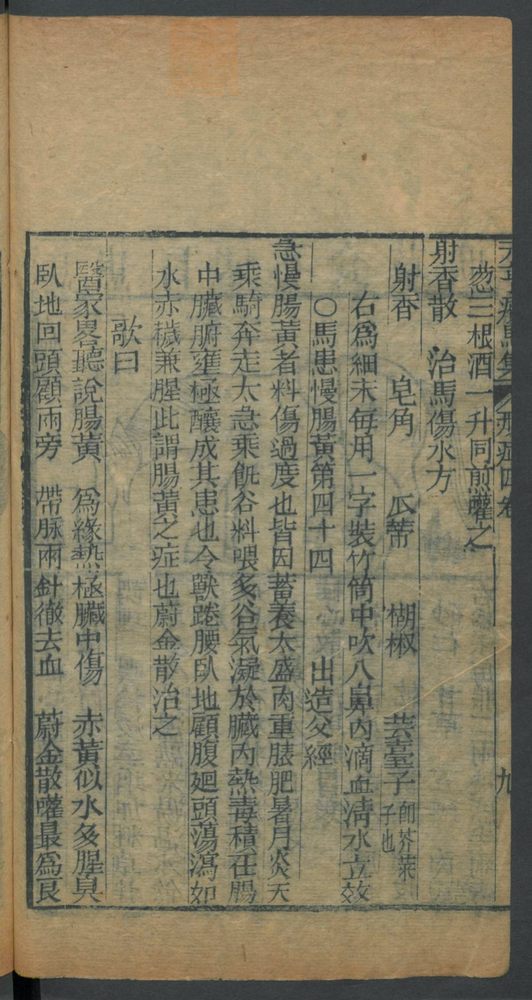 葱三根酒一升同煎嚾之
射香散　治馬傷水方
射香　皂角　瓜蒂　楜椒　芸薹子即芥菜子也
右爲細末每用一字裝竹筒中吹入鼻內滴血淸水立效
○馬患慢腸黃第四十四　出造父經
急慢腸黃者料傷過度也皆因蓄養太盛肉重膘肥暑月炎天
乘騎奔走太急乘飢谷料喂多谷氣凝於臟內熱毒積在腸
中臟腑壅極釀成其患也令獸踡腰臥地顧腹廻頭蕩瀉如
水赤穢兼腥此謂腸黃之症也蔚金散治之
歌曰
醫家畧聽說腸黃　爲緣熱極臟中傷　赤黃似水多腥臭
臥地回頭顧兩旁　帶脉兩針徹去血　蔚金散嚾最爲良